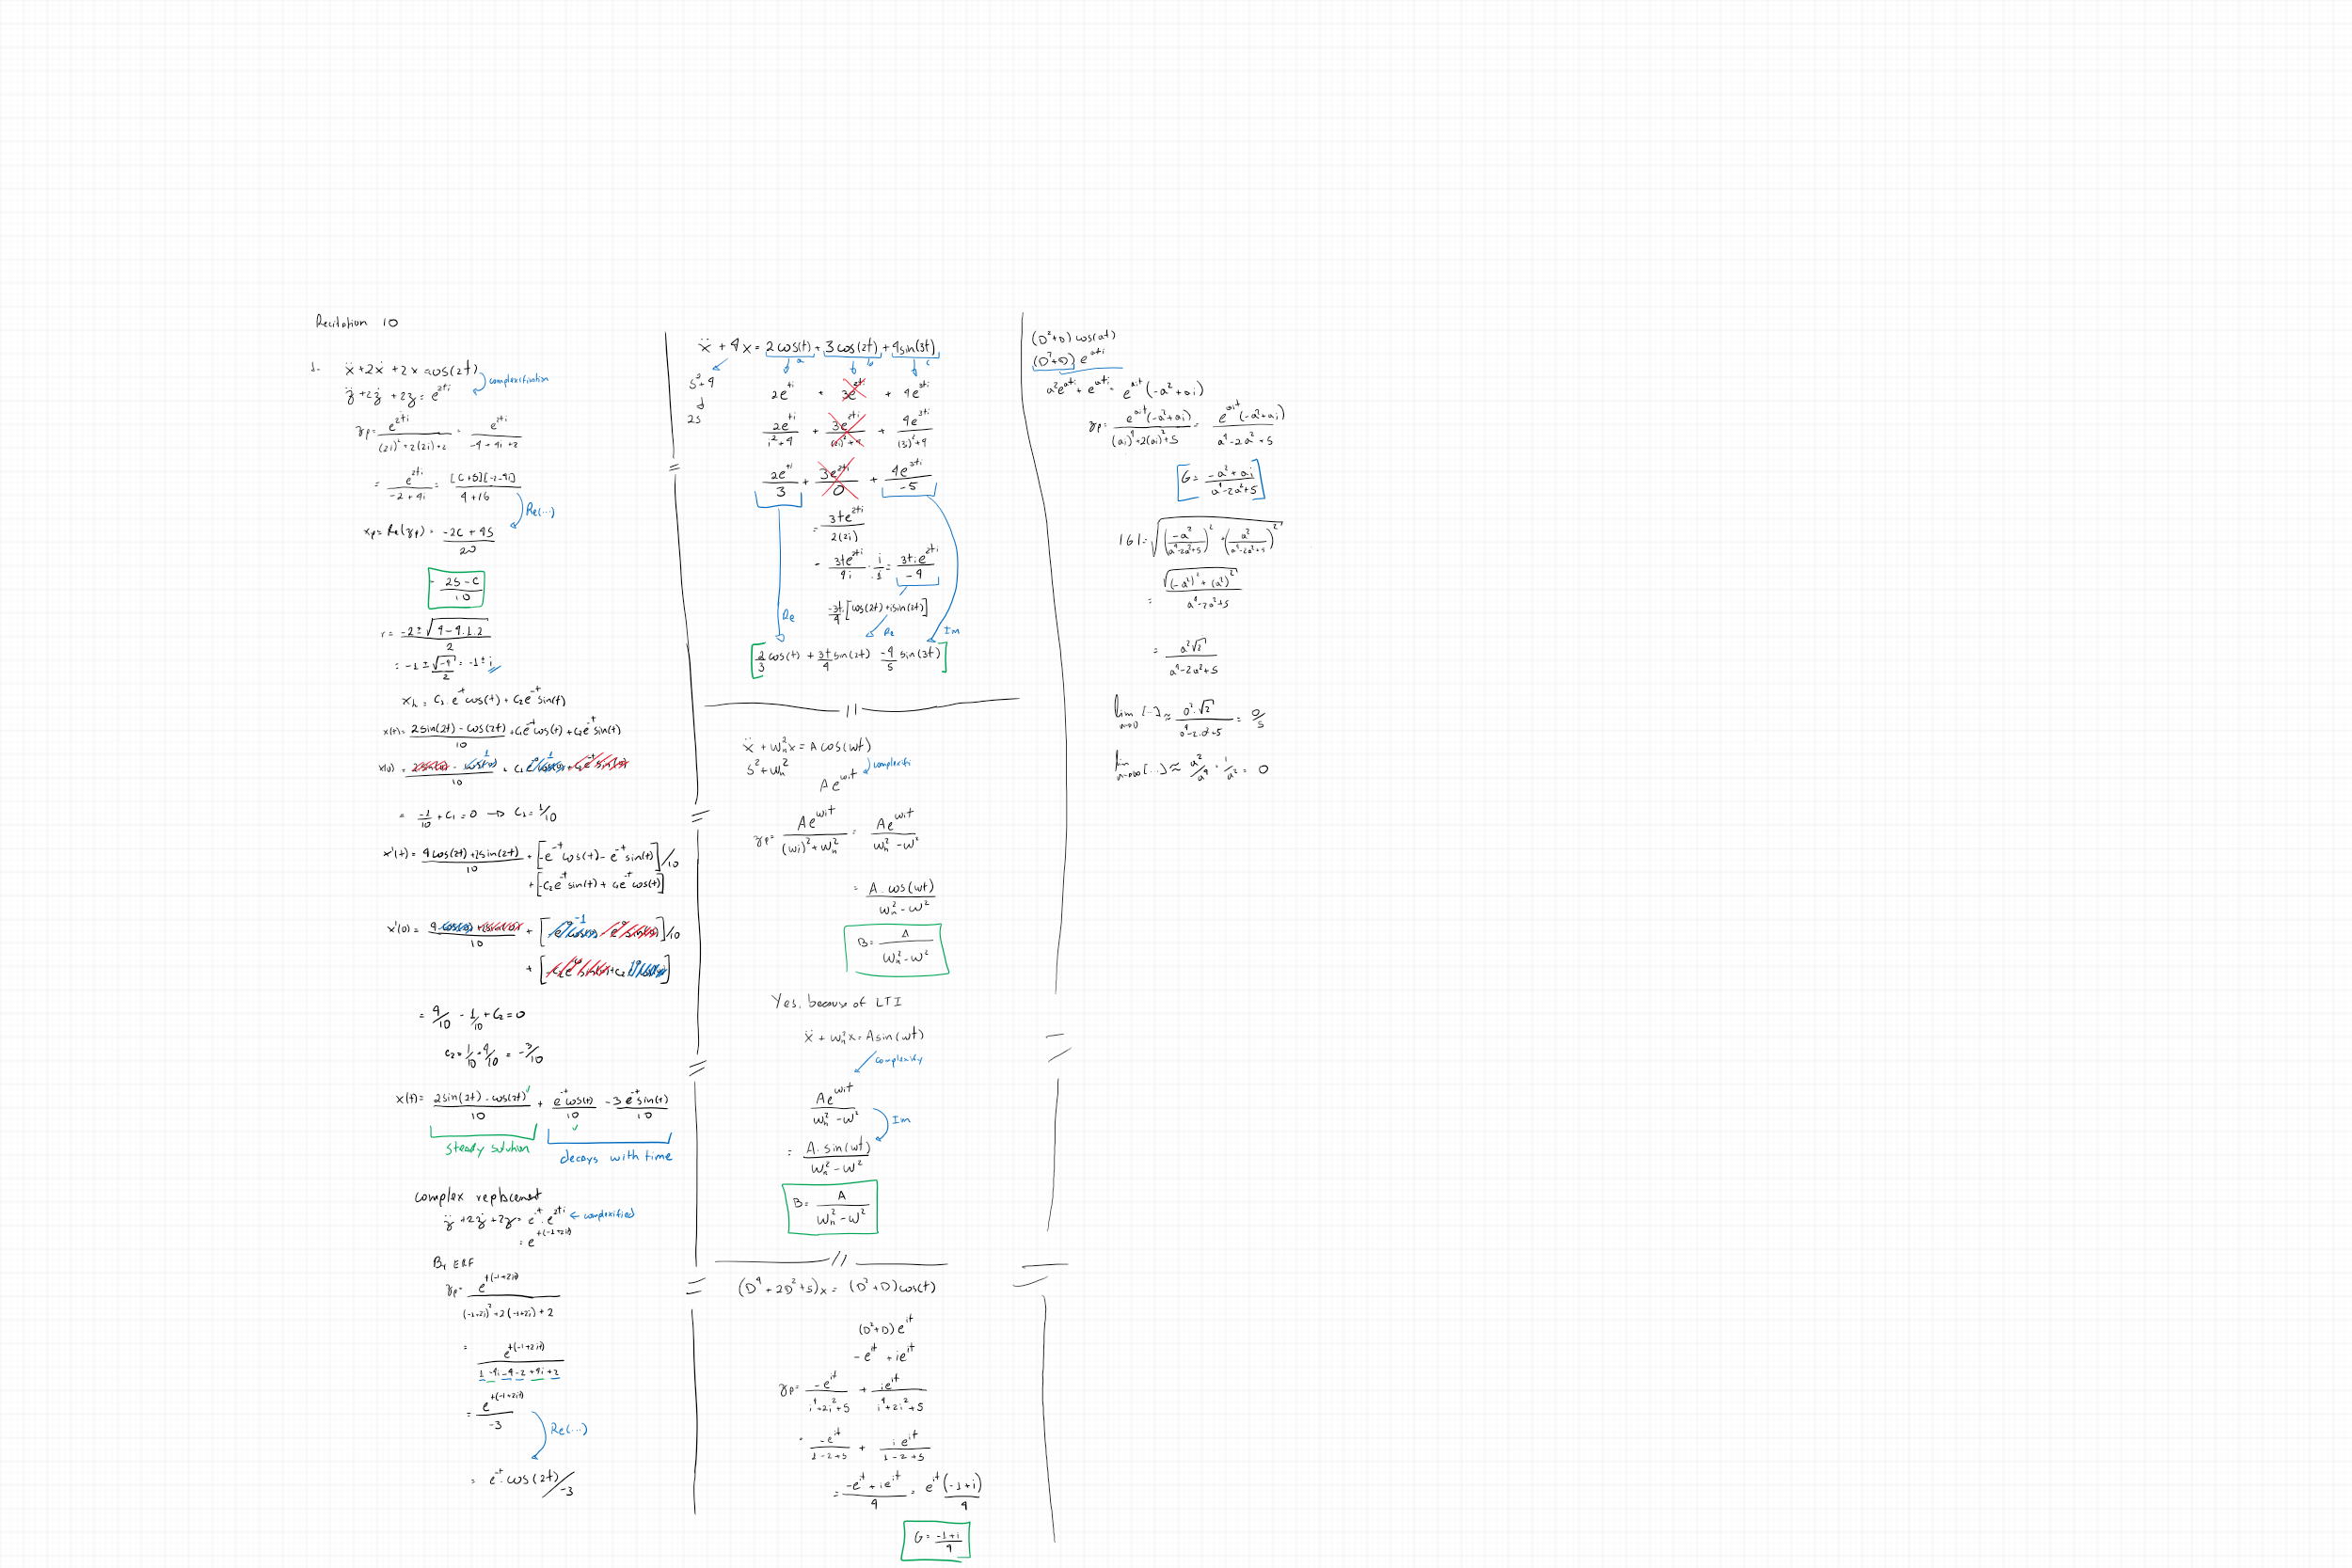 Recitation 10
1. ẍ + 2ẋ + 2x = cos(2t)
complexification
z̈ + 2ż + 2z = e^{2ti}
zp = e^{2ti} / ((2i)² + 2(2i) + 2) = e^{2ti} / (-4 + 4i + 2)
= e^{2ti} / (-2 + 4i) = [C + Si][-2 - 4i] / (4 + 16)
Re(...)
xp = Re(zp) = (-2C + 4S) / 20
= (2S - C) / 10
r = (-2 ± √(4 - 4.1.2)) / 2
= -1 ± √-4 / 2 = -1 ± i
xh = C1 e^{-t} cos(t) + C2 e^{-t} sin(t)
x(t) = (2sin(2t) - cos(2t)) / 10 + C1 e^{-t} cos(t) + C2 e^{-t} sin(t)
= -1/10 + C1 = 0 → C1 = 1/10
x'(t) = (4cos(2t) + 2sin(2t)) / 10 + [-e^{-t} cos(t) - e^{-t} sin(t)] / 10
+ [-C2 e^{-t} sin(t) + C2 e^{-t} cos(t)]
= 4/10 - 1/10 + C2 = 0
C2 = 1/10 - 4/10 = -3/10
x(t) = (2sin(2t) - cos(2t)) / 10 + e^{-t} cos(t) / 10 - 3 e^{-t} sin(t) / 10
steady solution
decays with time
complex replacement
z̈ + 2ż + 2z = e^{-t} · e^{2ti} ← complexified
= e^{t(-1+2i)}
By ERF
zp = e^{t(-1+2i)} / ((-1+2i)² + 2(-1+2i) + 2)
= e^{t(-1+2i)} / (1 - 4i - 4 - 2 + 4i + 2)
= e^{t(-1+2i)} / -3
Re(...)
= e^{-t} · cos(2t) / -3
ẍ + 4x = 2cos(t) + 3cos(2t) + 4sin(3t)
a b c
s² + 4
2s
2e^{ti} + 3e^{2ti} + 4e^{3ti}
2e^{ti} / (i² + 4) + 3e^{2ti} / ((2i)² + 4) + 4e^{3ti} / ((3i)² + 4)
2e^{ti} / 3 + 3e^{2ti} / 0 + 4e^{3ti} / -5
= 3te^{2ti} / 2(2i)
= 3te^{2ti} / 4i · i/i = 3t·i·e^{2ti} / -4
-3ti/4 [cos(2t) + i sin(2t)]
Re
Re
Im
2/3 cos(t) + 3t/4 sin(2t) - 4/5 sin(3t)
ẍ + ωn² x = A cos(ωt)
s² + ωn²
complexifi
A e^{ωit}
zp = A e^{ωit} / ((ωi)² + ωn²) = A e^{ωit} / (ωn² - ω²)
= A · cos(ωt) / (ωn² - ω²)
B = A / (ωn² - ω²)
Yes, because of LTI
ẍ + ωn² x = A sin(ωt)
complexify
A e^{ωit} / (ωn² - ω²)
Im
= A · sin(ωt) / (ωn² - ω²)
B = A / (ωn² - ω²)
(D⁴ + 2D² + 5)x = (D² + D) cos(t)
(D² + D) e^{it}
-e^{it} + ie^{it}
zp = -e^{it} / (i⁴ + 2i² + 5) + ie^{it} / (i⁴ + 2i² + 5)
= -e^{it} / (1 - 2 + 5) + i e^{it} / (1 - 2 + 5)
= (-e^{it} + ie^{it}) / 4 = e^{it} (-1 + i) / 4
G = (-1 + i) / 4
(D² + D) cos(at)
(D² + D) e^{ati}
a²e^{ati} + e^{ati} = e^{ait} (-a² + ai)
zp = e^{ait} (-a² + ai) / ((ai)⁴ + 2(ai)² + 5) = e^{ait} (-a² + ai) / (a⁴ - 2a² + 5)
G = (-a² + ai) / (a⁴ - 2a² + 5)
|G| = √((-a² / (a⁴ - 2a² + 5))² + (a² / (a⁴ - 2a² + 5))²)
= √((-a²)² + (a²)²) / (a⁴ - 2a² + 5)
= a²√2 / (a⁴ - 2a² + 5)
lim a→0 [...] ≈ 0²·√2 / (0⁴ - 2·0² + 5) = 0/5
lim a→∞ [...] ≈ a²/a⁴ = 1/a² = 0